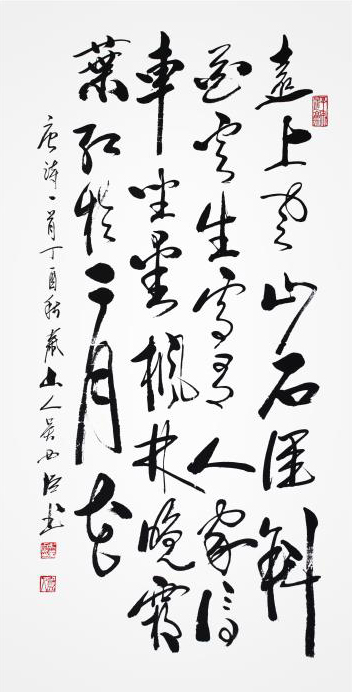 遠上寒山石徑斜
白雲生處有人家停
車坐愛楓林晚霜
葉紅於二月花
唐詩一首丁酉秋山人吳書